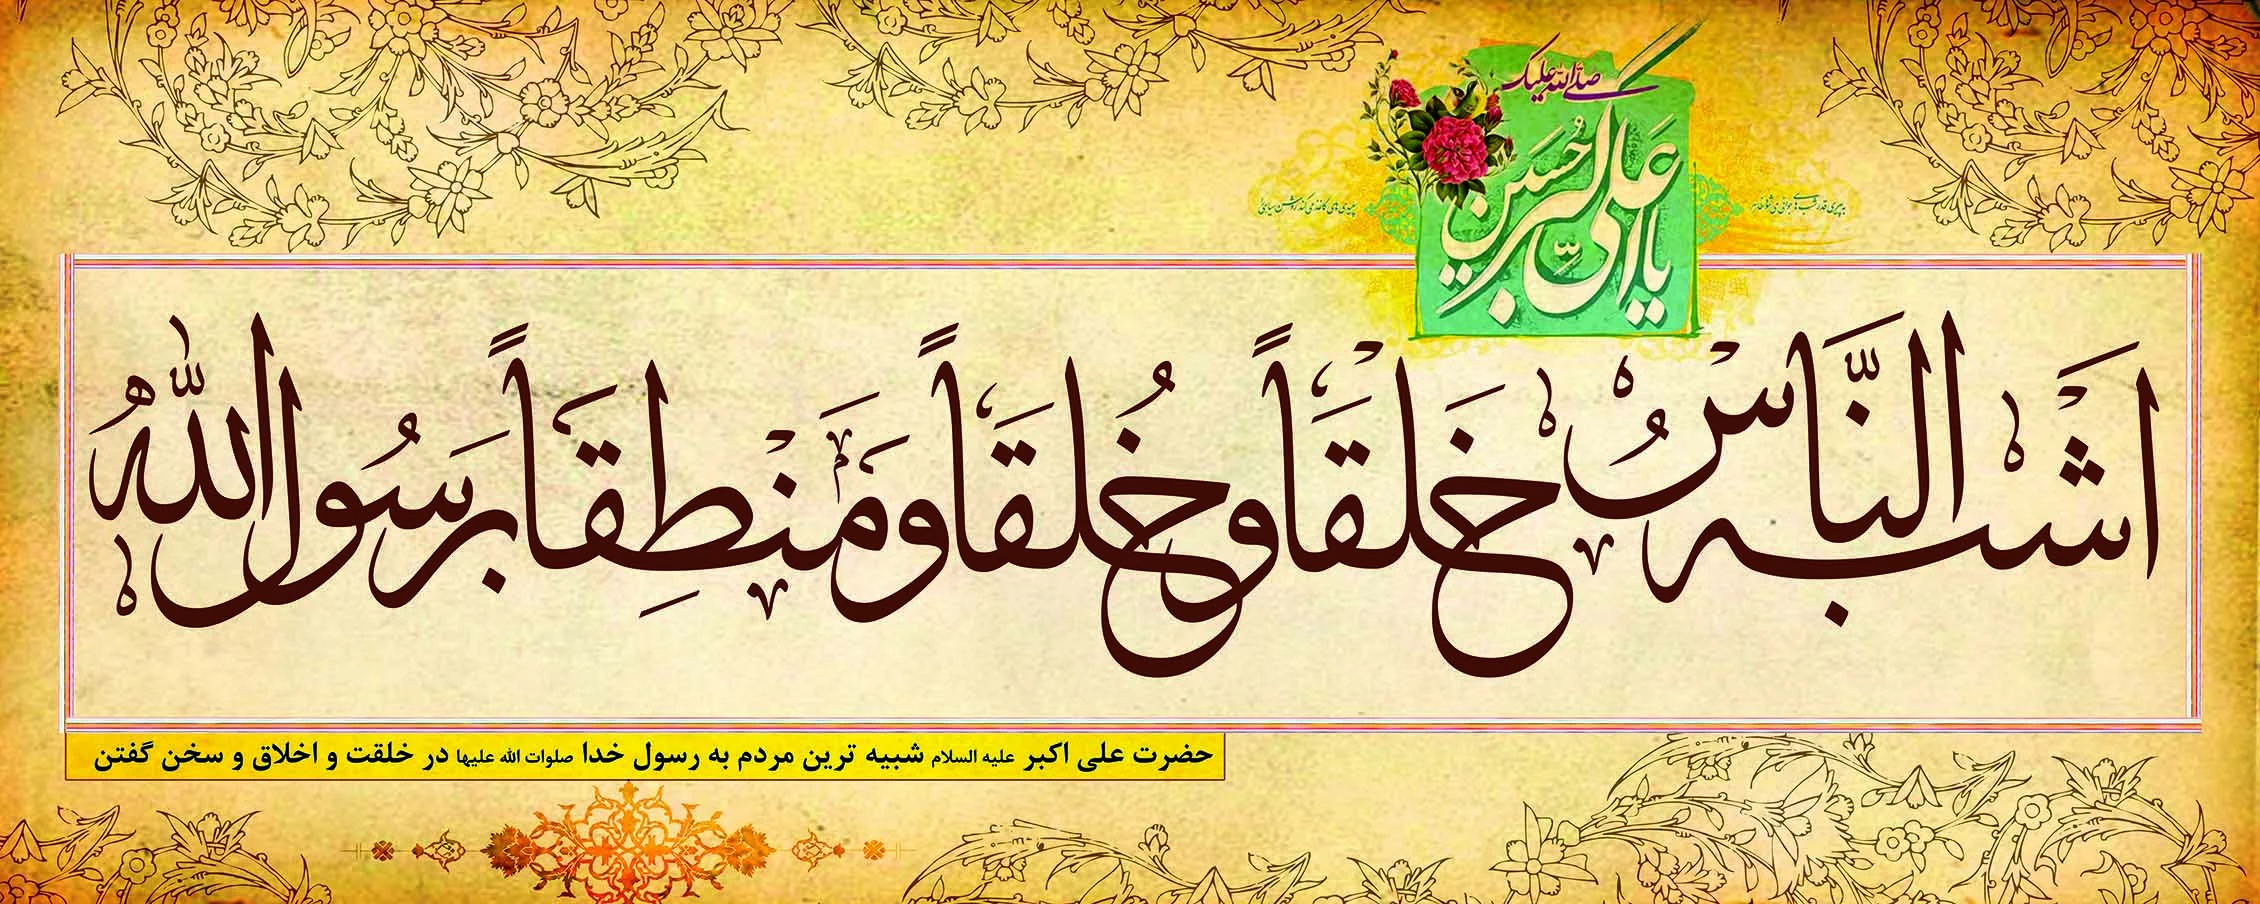 صلی الله علیک
یا علی اکبر حسین
اشبه النّاسُ خَلْقَاً و خُلقَاً و مَنْطِقَاً بِرَسُول اللهُ
حضرت علی اکبر علیه السلام شبیه ترین مردم به رسول خدا صلوات الله علیها در خلقت و اخلاق و سخن گفتن